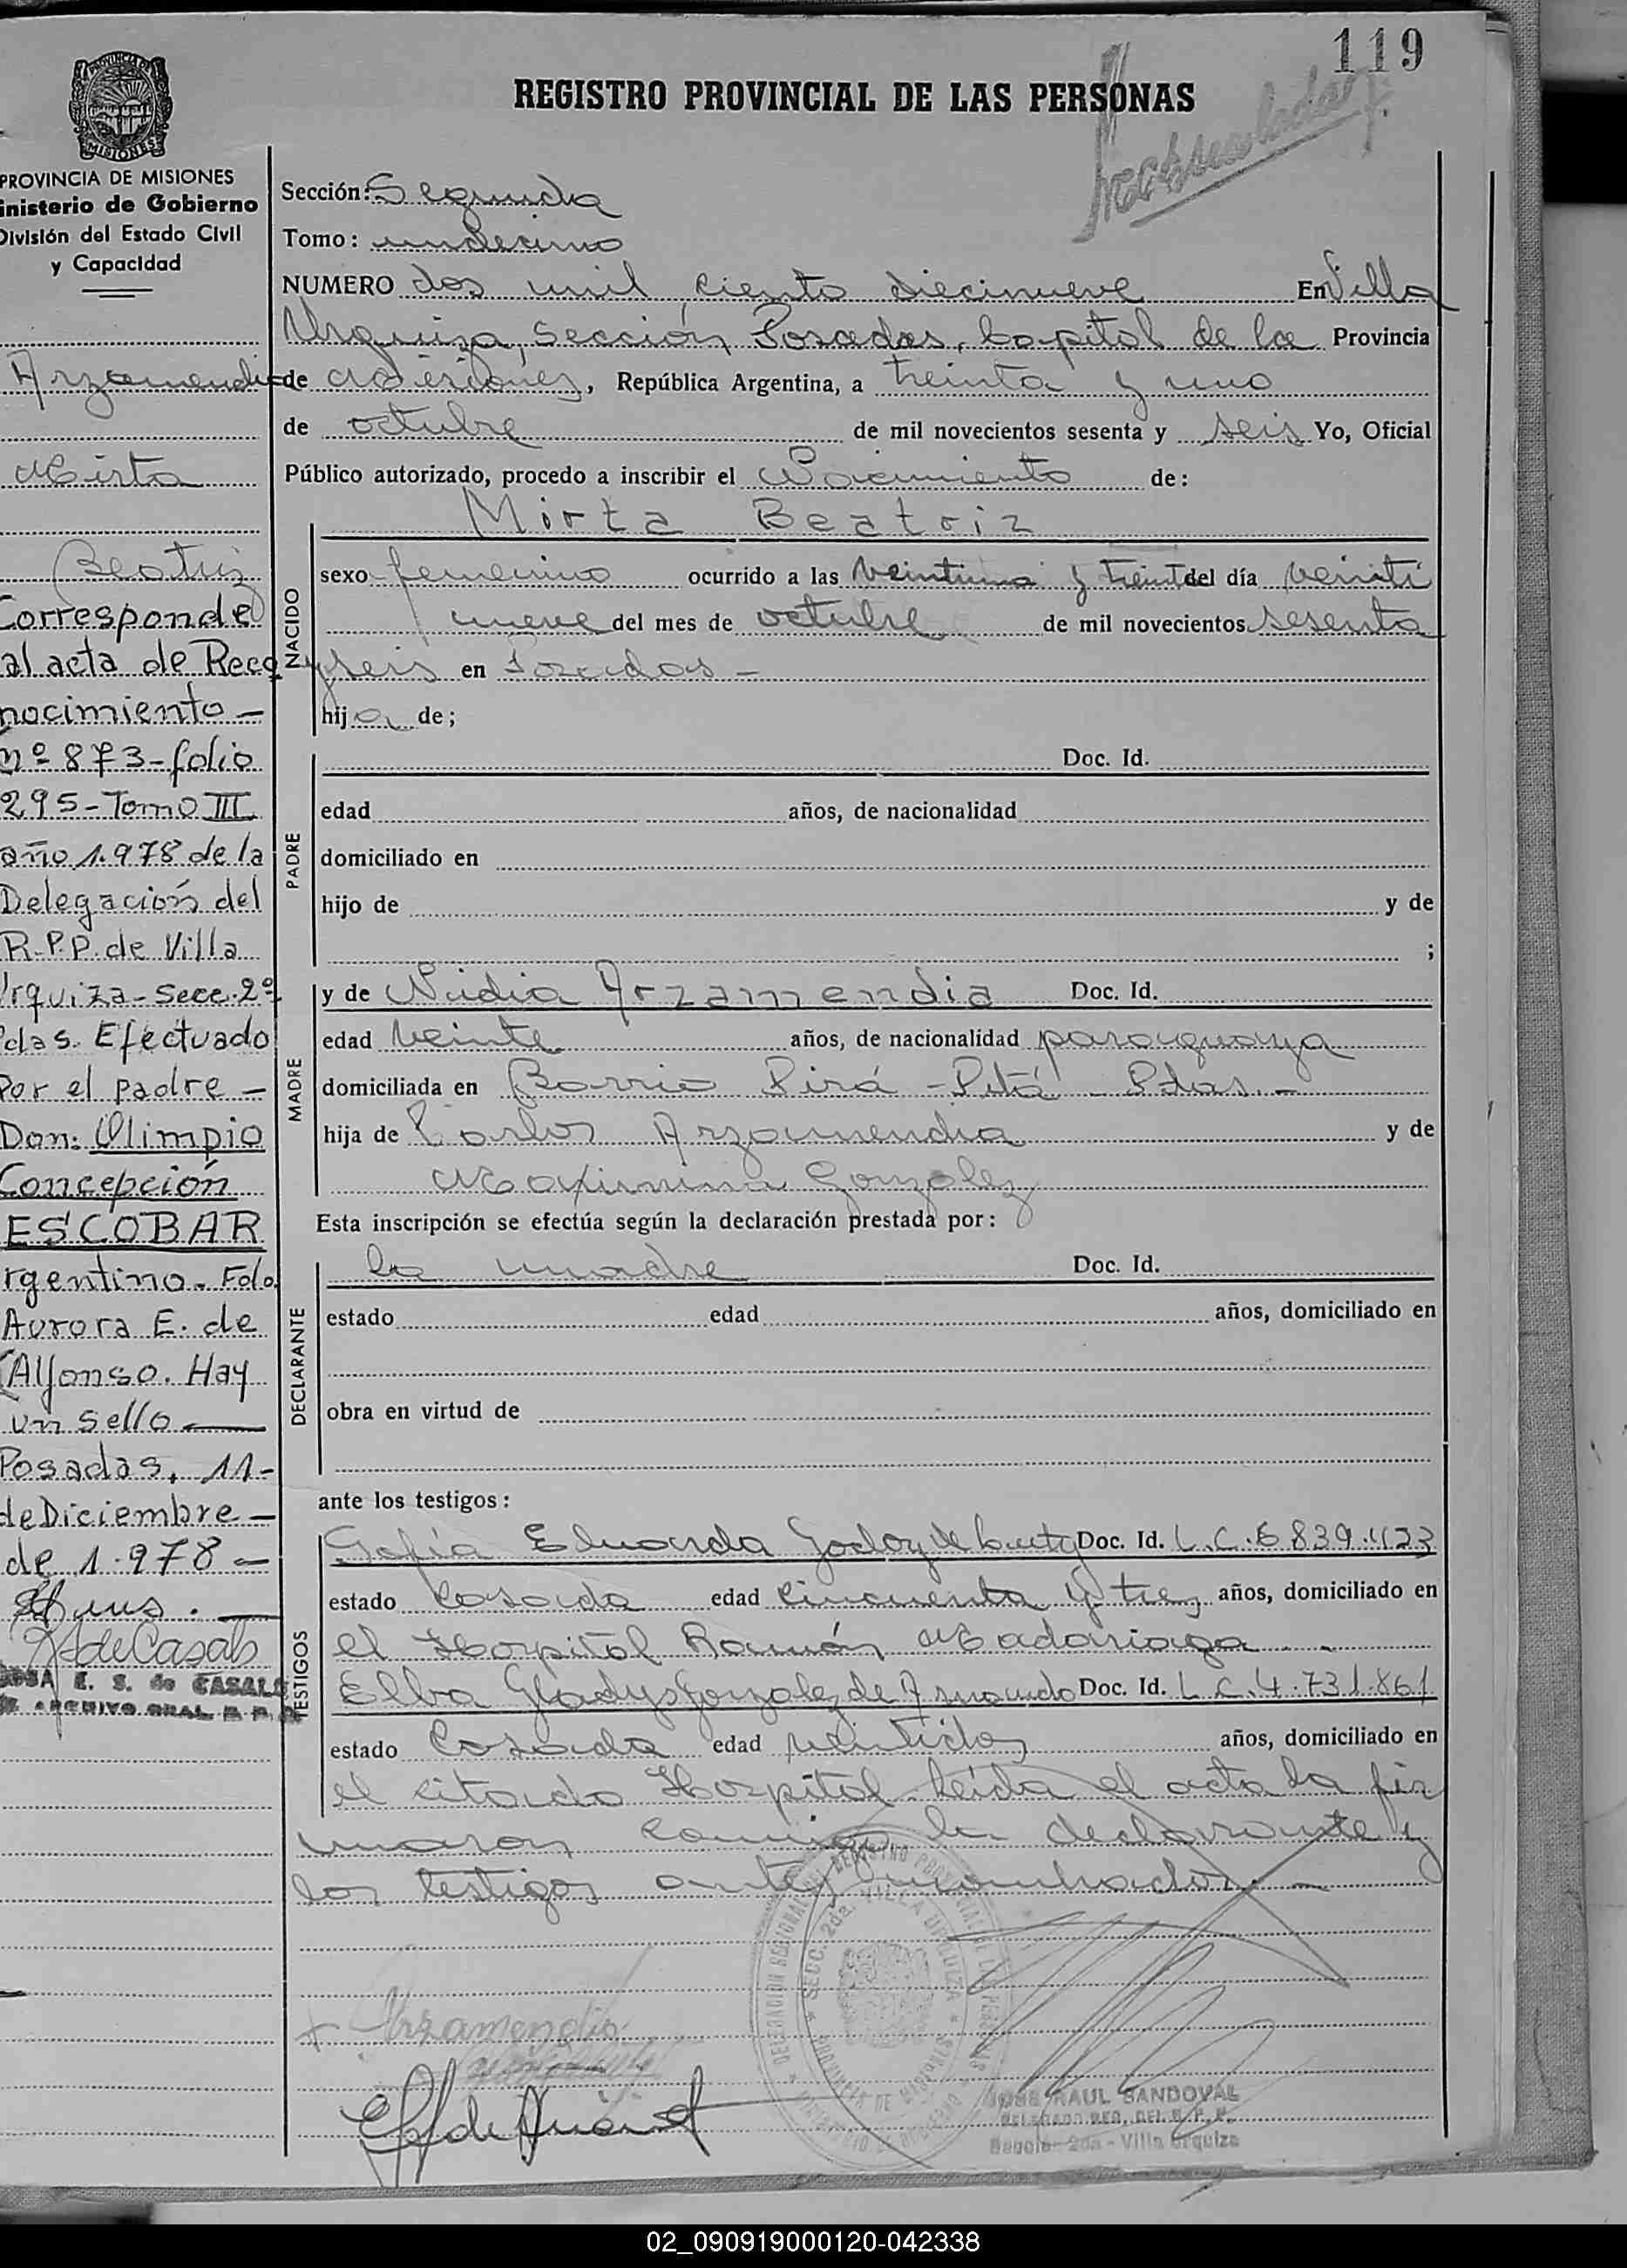 119
REGISTRO PROVINCIAL DE LAS PERSONAS
PROVINCIA DE MISIONES
PROVINCIA DE MISIONES
inisterio de Gobierno
División del Estado Civil
y Capacidad
Arzamendia
Mirta
Beatriz
Corresponde
al acta de Reco
nocimiento -
nº 873 - folio
295 - Tomo III
año 1.978 de la
Delegación del
R.P.P. de Villa
Urquiza - Secc. 2º
Pdas. Efectuado
Por el padre -
Don: Olimpio
Concepción
ESCOBAR
rgentino - Fdo.
Aurora E. de
Alfonso. Hay
un sello
Posadas, 11-
de Diciembre -
de 1.978 -
de Casals
E. S. de CASALS
ARCHIVO GRAL.
Sección: Segunda
Tomo: undecimo
NUMERO dos mil ciento diecinueve En Villa
Urquiza, Sección Posadas, Capital de la Provincia
de Misiones, República Argentina, a treinta y uno
de octubre de mil novecientos sesenta y seis Yo, Oficial
Público autorizado, procedo a inscribir el Nacimiento de:
Mirta Beatriz
NACIDO
sexo femenino ocurrido a las veintiuna y treinta del día veinti
nueve del mes de octubre de mil novecientos sesenta
y seis en Posadas -
hija de;
PADRE
Doc. Id.
edad años, de nacionalidad
domiciliado en
hijo de y de
;
MADRE
y de Nidia Arzamendia Doc. Id.
edad veinte años, de nacionalidad paraguaya
domiciliada en Barrio Pirá - Pitá - Pdas. -
hija de Carlos Arzamendia y de
Maximina Gonzalez
Esta inscripción se efectúa según la declaración prestada por:
DECLARANTE
la madre Doc. Id.
estado edad años, domiciliado en
obra en virtud de
ante los testigos:
TESTIGOS
Sofía Eduarda Godoy de Doc. Id. L.C. 6.839.423
estado Casada edad cincuenta y tres años, domiciliado en
el Hospital Ramón Madariaga
Elba Gladys Gonzalez de Doc. Id. L.C. 4.731.861
estado Casada edad veintidos años, domiciliado en
el citado Hospital. Leída el acta la fir
maron conmigo la declarante y
los testigos antes nombrados. -
DELEGACION REGIONAL DEL REGISTRO PROVINCIAL DE LAS PERSONAS
SECC. 2da. VILLA URQUIZA
PROVINCIA DE MISIONES
MINISTERIO DE GOBIERNO
Arzamendia
JOSE RAUL SANDOVAL
DELEGADO REG. DEL R. P. P.
Sección 2da - Villa Urquiza
02_090919000120-042338